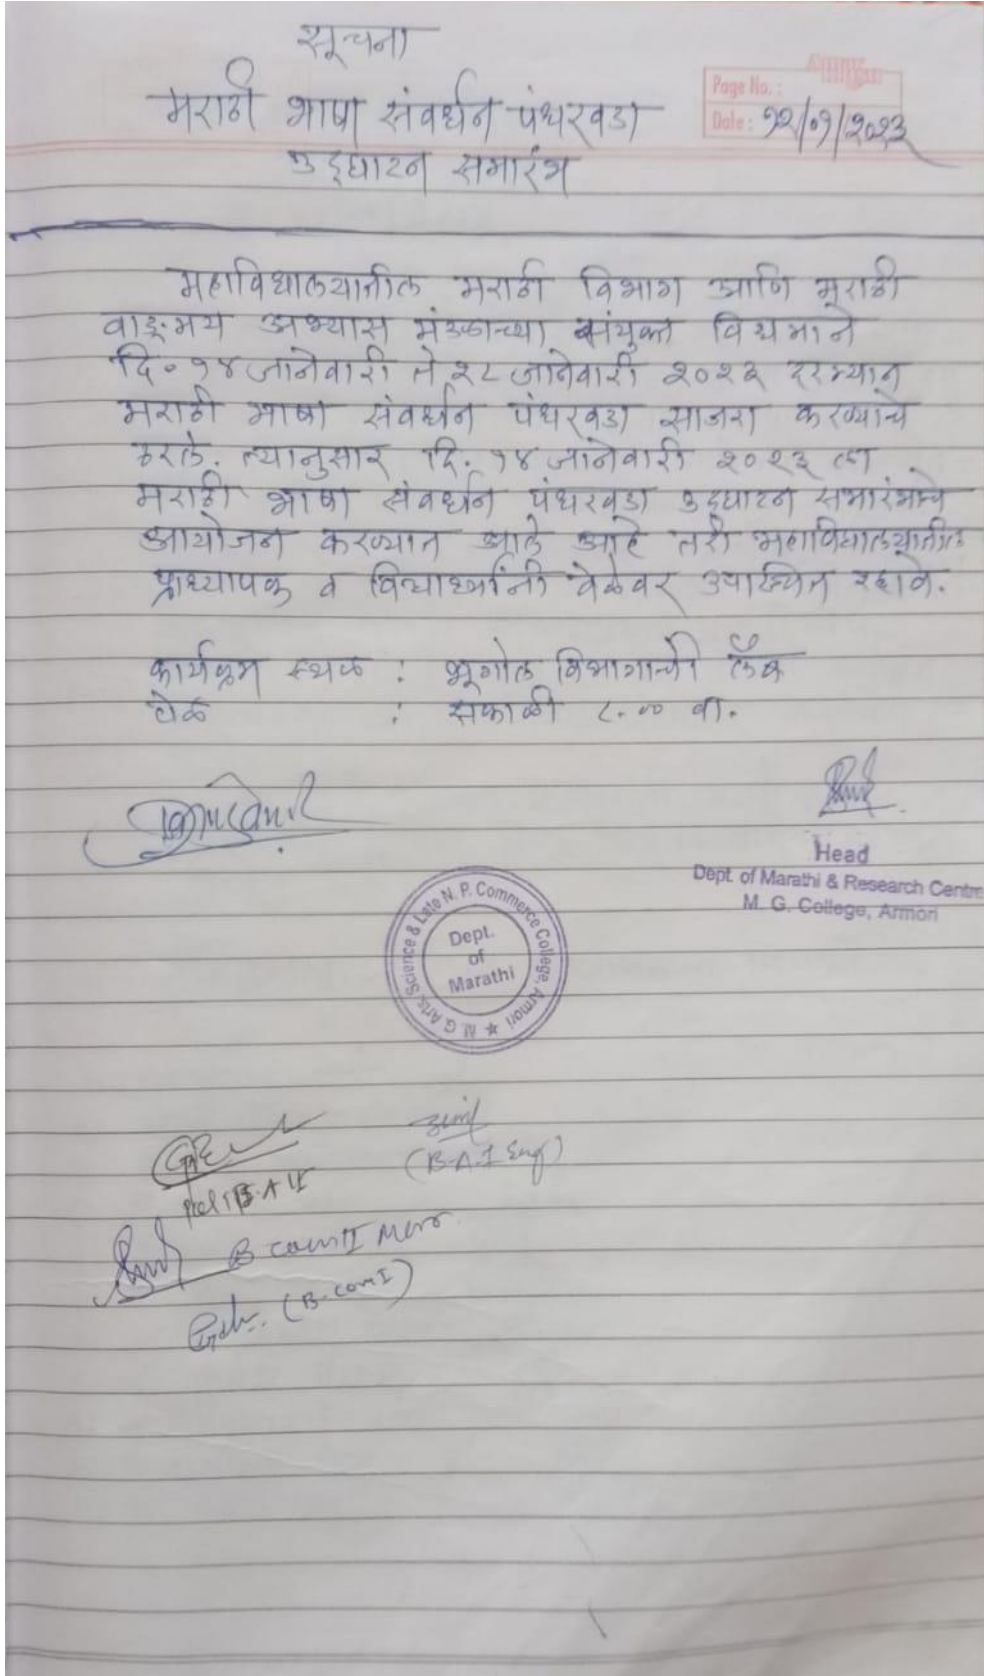 सूचना
मराठी भाषा संवर्धन पंधरवडा
उद्घाटन समारंभ
Page No.:
Date: १२/०१/२०२३
महाविद्यालयातील मराठी विभाग आणि मराठी
वाङ्‌मय अभ्यास मंडळाच्या संयुक्त विद्यमाने
दि. १४ जानेवारी ते २८ जानेवारी २०२३ दरम्यान
मराठी भाषा संवर्धन पंधरवडा साजरा करण्याचे
ठरले. त्यानुसार दि. १४ जानेवारी २०२३ ला
मराठी भाषा संवर्धन पंधरवडा उद्घाटन समारंभाचे
आयोजन करण्यात आले आहे तरी महाविद्यालयातील
प्राध्यापक व विद्यार्थ्यांनी वेळेवर उपस्थित रहावे.
कार्यक्रम स्थळ : भूगोल विभागाची लॅब
वेळ : सकाळी ८.०० वा.
Head
Dept. of Marathi & Research Centre
M. G. College, Armori
M. G. Arts, Science & Late N. P. Commerce College, Armori ★
Dept.
of
Marathi
(B.A.I Eng)
B.A II
B com II
(B.com I)